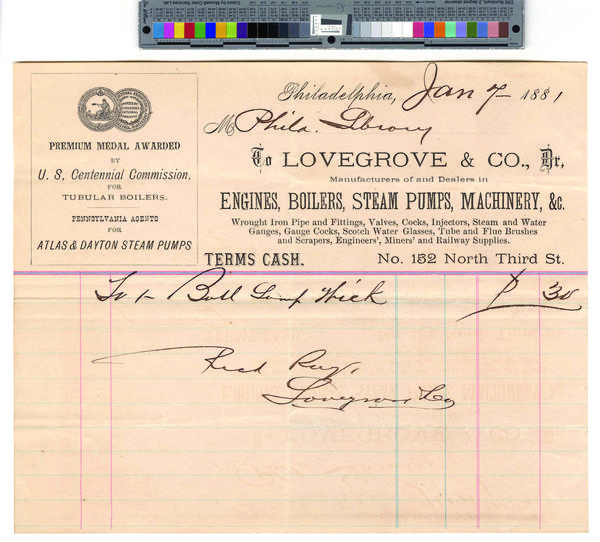 Philadelphia, Jan 7 1881
M Phila. Library
To LOVEGROVE & CO., Dr,
Manufacturers of and Dealers in
ENGINES, BOILERS, STEAM PUMPS, MACHINERY, &c.
Wrought Iron Pipe and Fittings, Valves, Cocks, Injectors, Steam and Water
Gauges, Gauge Cocks, Scotch Water Glasses, Tube and Flue Brushes
and Scrapers, Engineers', Miners' and Railway Supplies.
TERMS CASH. No. 152 North Third St.
PREMIUM MEDAL AWARDED
BY
U. S. Centennial Commission,
FOR
TUBULAR BOILERS.
PENNSYLVANIA AGENTS
FOR
ATLAS & DAYTON STEAM PUMPS
To 1 Ball Lamp Wick 30
Recd Pay.
Lovegrove & Co